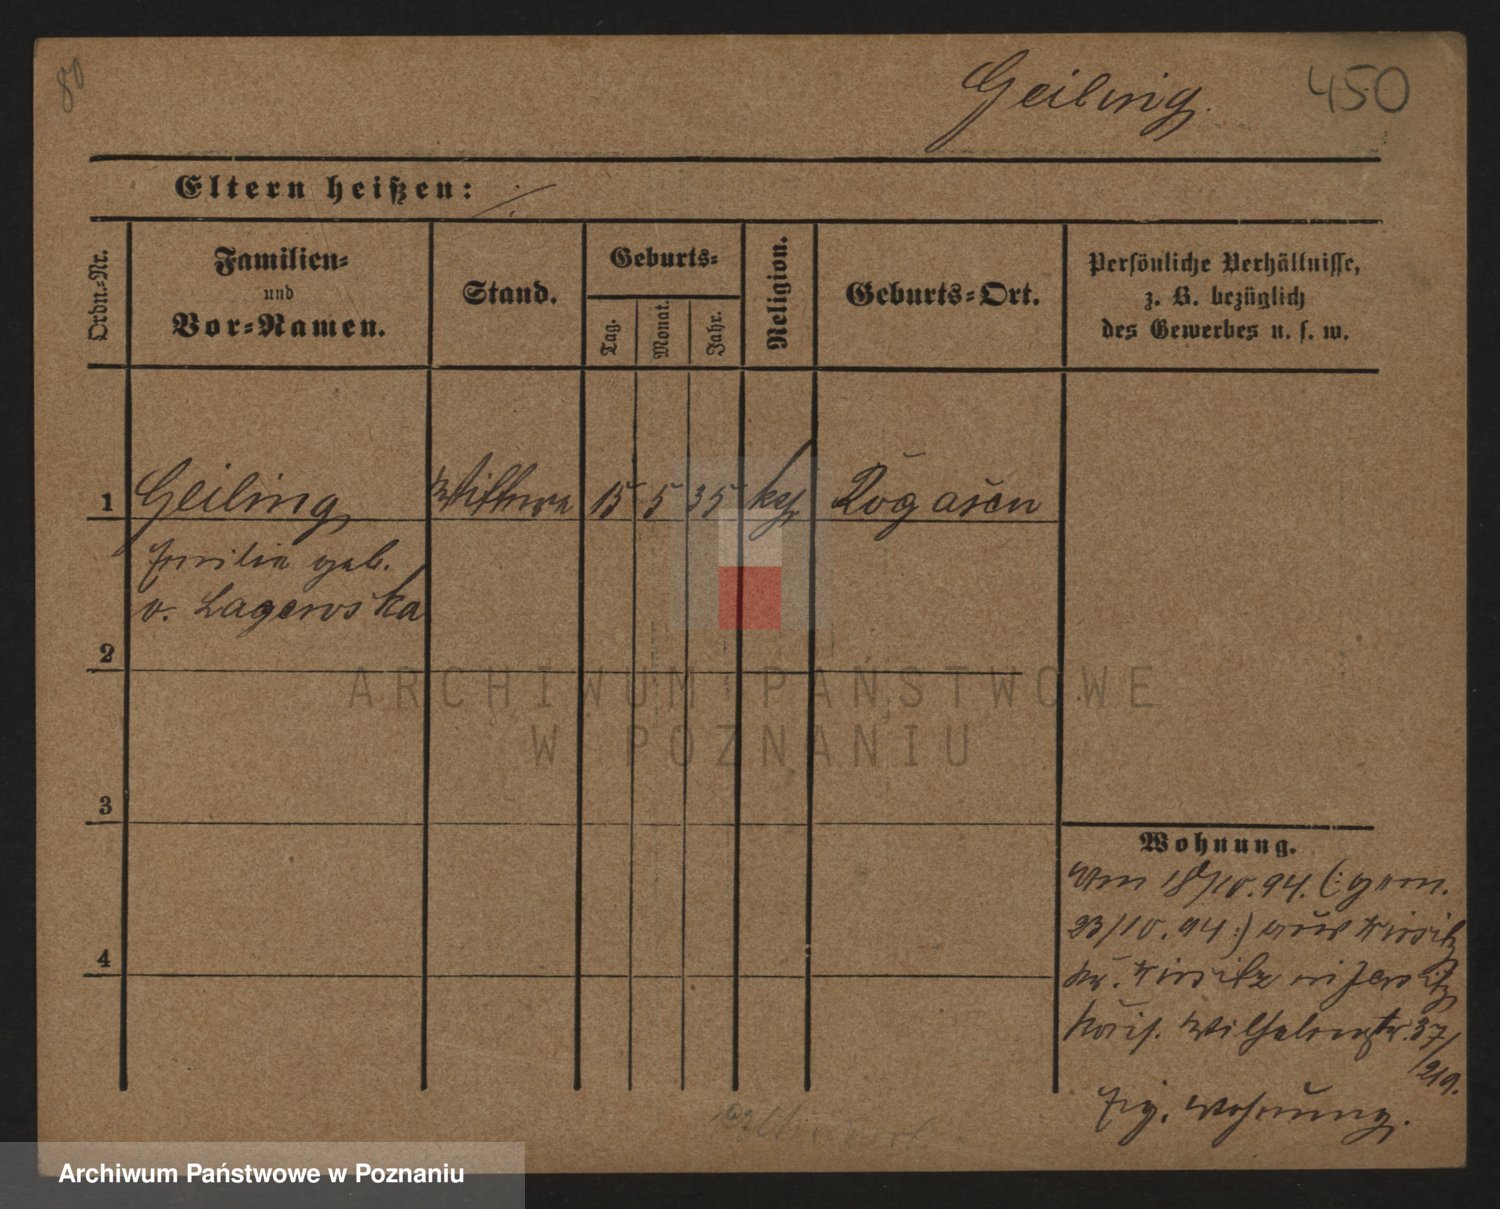 80
Geiling.
450
Eltern heißen:
Ordn.-Nr.
Familien-
und
Vor-Namen.
Stand.
Geburts-
Tag.
Monat.
Jahr.
Religion.
Geburts-Ort.
Persönliche Verhältnisse,
z. B. bezüglich
des Gewerbes u. s. w.
1 Geiling Wittwe 15 5 35 kath Rogasen
Emilie geb.
v. Lagewska
2
3
4
Wohnung.
18/10.94. (: gem.
23/10.94 :) aus Wirsitz
Kr. Wirsitz
Wilhelmstr. 37/
219.
Eig. Wohnung.
ARCHIWUM PAŃSTWOWE
W POZNANIU
Archiwum Państwowe w Poznaniu